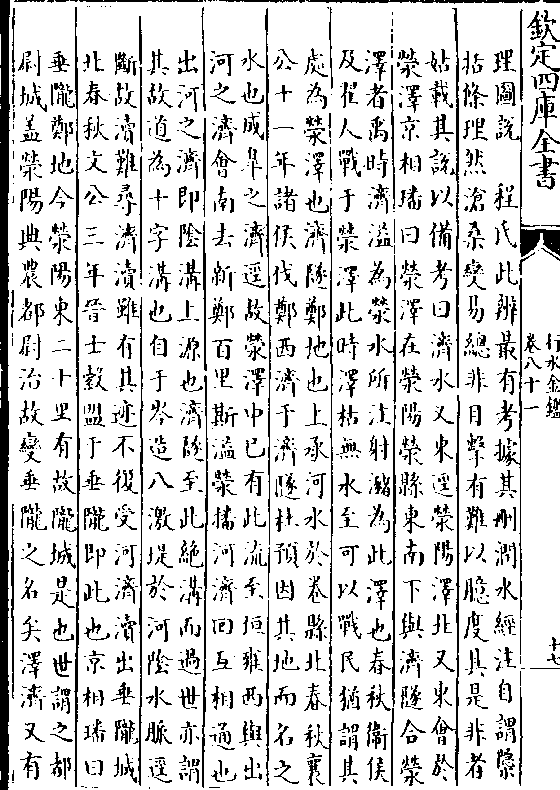 欽定四庫全書
行水金鑑
卷八十一
十七
理圖說　程氏此辨最有考據其刪潤水經注自謂檃
括條理然滄桑變易總非目擊有難以臆度其是非者
姑載其說以備考曰濟水又東逕滎陽澤北又東會於
滎澤京相璠曰滎澤在滎陽滎縣東南下與濟隧合滎
澤者禹時濟溢為滎水所注射瀦為此澤也春秋衛侯
及翟人戰于滎澤此時澤枯無水至可以戰民猶謂其
處為滎澤也濟隧鄭地也上承河水於卷縣北春秋襄
公十一年諸侯伐鄭西濟于濟隧杜預因其地而名之
水也成臯之濟逕故滎澤中已有此流至垣雍西與出
河之濟會南去新鄭百里斯溢滎播河濟回互相通也
出河之濟即陰溝上源也濟隧至此絶溝而過世亦謂
其故道為十字溝也自于岑造八激堤於河陰水脈逕
斷故瀆難尋濟瀆雖有其迹不復受河濟瀆出垂隴城
北春秋文公三年晉士縠盟于垂隴即此也京相璠曰
垂隴鄭地今滎陽東二十里有故隴城是也世謂之都
尉城盖滎陽典農都尉治故變垂隴之名矣澤濟又有